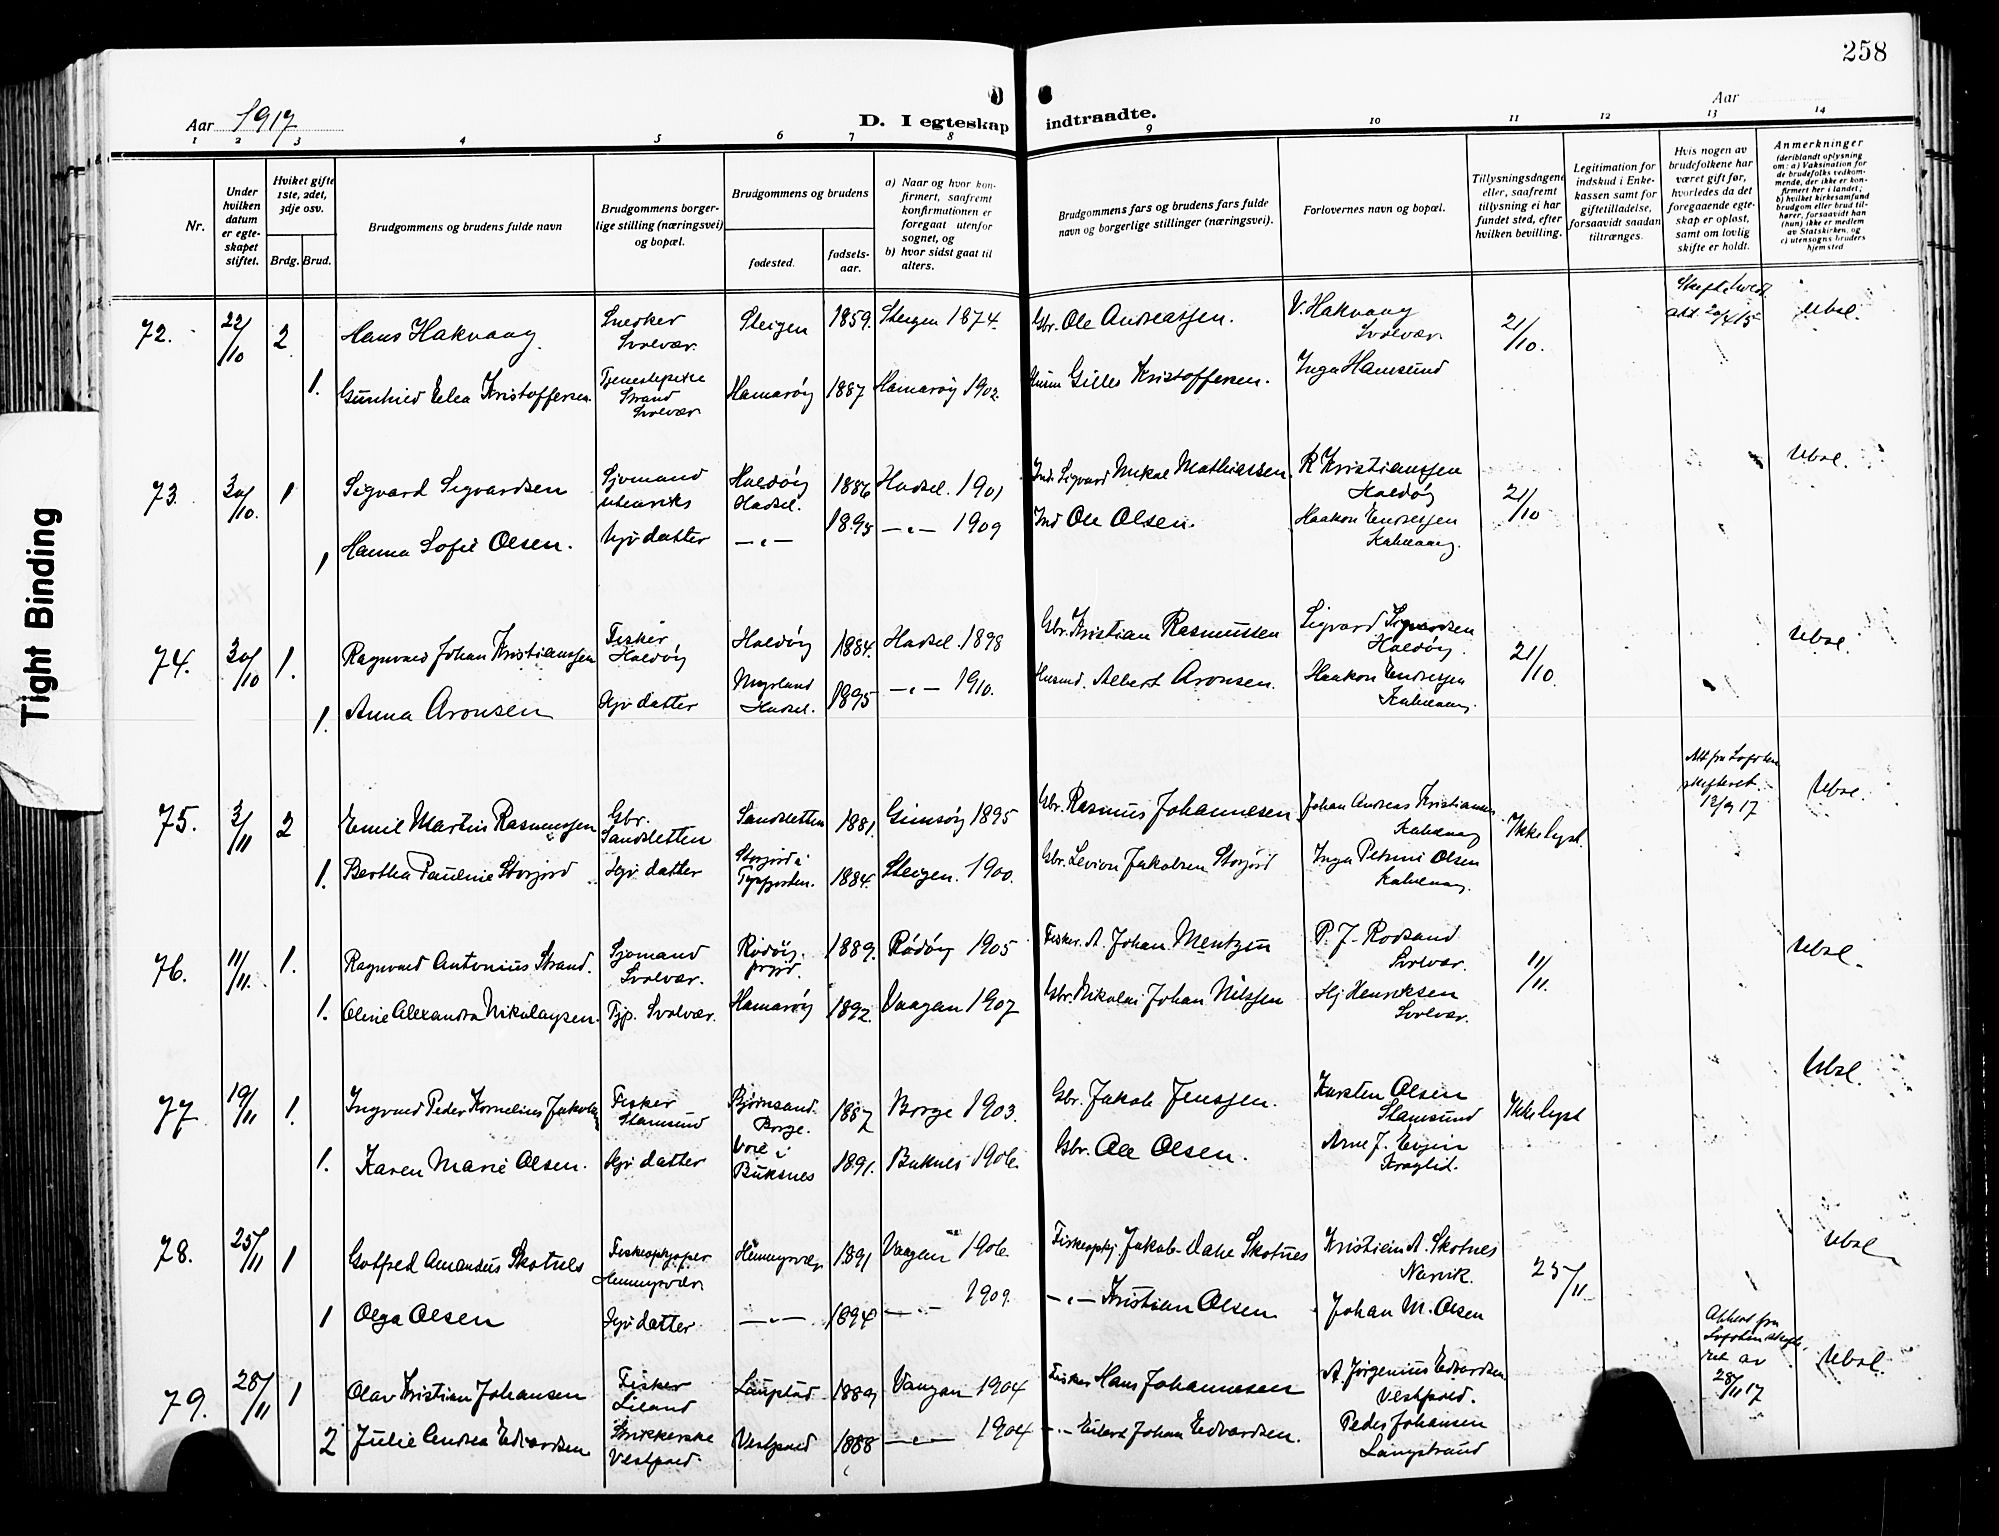 258
Aar 1917
D. I egteskap indtraadte.
Aar
1 2 3 4 5 6 7 8 9 10 11 12 13 14
Nr.
Under hvilken datum er egteskapet stiftet.
Hvilket gifte 1ste, 2det, 3dje osv.
Brdg. Brud.
Brudgommens og brudens fulde navn
Brudgommens borgerlige stilling (næringsvei) og bopæl.
Brudgommens og brudens
fødested.
fødselsaar.
a) Naar og hvor konfirmert, saafremt konfirmationen er foregaat utenfor sognet, og
b) hvor sidst gaat til alters.
Brudgommens fars og brudens fars fulde navn og borgerlige stillinger (næringsvei).
Forlovernes navn og bopæl.
Tillysningsdagene eller, saafremt tillysning ei har fundet sted, efter hvilken bevilling.
Legitimation for indskud i Enkekassen samt for giftetilladelse, forsaavidt saadan tiltrænges.
Hvis nogen av brudefolkene har været gift før, hvorledes da det foregaaende egteskap er opløst, samt om lovlig skifte er holdt.
Anmerkninger (deriblandt oplysning om: a) Vaksination for de brudefolks vedkommende, der ikke er konfirmert her i landet; b) hvilket kirkesamfund brudgom eller brud tilhører, forsaavidt han (hun) ikke er medlem av Statskirken, og c) utensogns bruders hjemsted
72. 22/10 2 Hans Hakvaag Snedker Svolvær Steigen 1859. Steigen 1874. Gbr. Ole Andreassen. V. Hakvaag Svolvær 21/10.
1. Kristoffersen Strand Svolvær Hamarøy 1887 Hamarøy 1902. Gilles Kristoffersen. Inga Hamsund
73. 30/10. 1 Sigvard Sigvardsen Sjømand Haldøy Hadsel. 1886 Hadsel. 1901 Ind. Sigvard Mikal Mathiassen R Kristianssen Haldøy 21/10
1 Hanna Sofie Olsen. Hjv datter —„— 1895 —„— 1909 Ind Ole Olsen. Haakon Endressen Kalvaag.
74. 30/10 1. Ragnvald Johan Kristianssen Fisker Haldöy Haldöy 1884. Hadsel. 1898 Gbr. Kristian Rasmussen Sigvard Sigvardsen Haldöy. 21/10.
1. Anna Aronsen Hjv datter Myrland Hadsel. 1895 —„— 1910. Husmd. Albert Aronsen. Haakon Endressen Kalvaag.
75. 3/11 2 Emil Martin Rasmussen Gbr. Sandsletten Sandsletten 1881. Gimsøy 1895 Gbr. Rasmus Johannesen Johan Andreas Kristiansen Kalvaag Ikke lyst. 12/9 17
1. Bertha Pauline Storjord Hjv datter Storjord i Tysfjorden. 1884. Steigen. 1900. Gbr. Levion Jakobsen Storjord Inga Petrine Olsen Kalvaag.
76. 11/11. 1. Ragnvald Antonius Strand. Sjømand Svolvær. Rödöy 1889. Rödöy 1905 Fisker. A. Johan Mentzen P. J. Rodsand Svolvær. 11/11.
1. Oline Alexandra Nikolaysen. Tjp. Svolvær. Hamarøy 1892. Vaagan 1907 Gbr. Nikolai Johan Nilssen Hj Henriksen Svolvær.
77 19/11 1. Ingvald Peder Kornelius Jakobsen Fisker Stamsund Bjørnsand. Borge. 1887 Borge 1903. Gbr. Jakob Jenssen. Karsten Olsen Stamsund Ikke lyst
1. Karen Marie Olsen. Hjv datter Vold i Buksnes 1891. Buksnes 1906. Gbr. Ole Olsen. Arne J.
78. 25/11 1 Gotfred Amandus Skotnes Fiskeopkjøper Henningsvær Henningsvær 1891 Vaagan 1906. Fiskeopkj. Jakob Skotnes Kristian A. Skotnes Narvik. 25/11
1 Olga Olsen Hjv datter —„— 1894 —„— 1909. —„— Kristian Olsen Johan M. Olsen
79. 28/11 1 Olav Kristian Johansen Fisker Liland Laupstad 1889 Vaagan 1904 Fisker Hans Johannesen A. Jørgenius Edvardsen Vestpold. 28/11 17
2 Julie Andrea Edvardsen Strikkerske Vestpold. Vestpold 1888 —„— 1904 —„— Eilert Johan Edvardsen. Peder Johansen Langstrand
Tight Binding